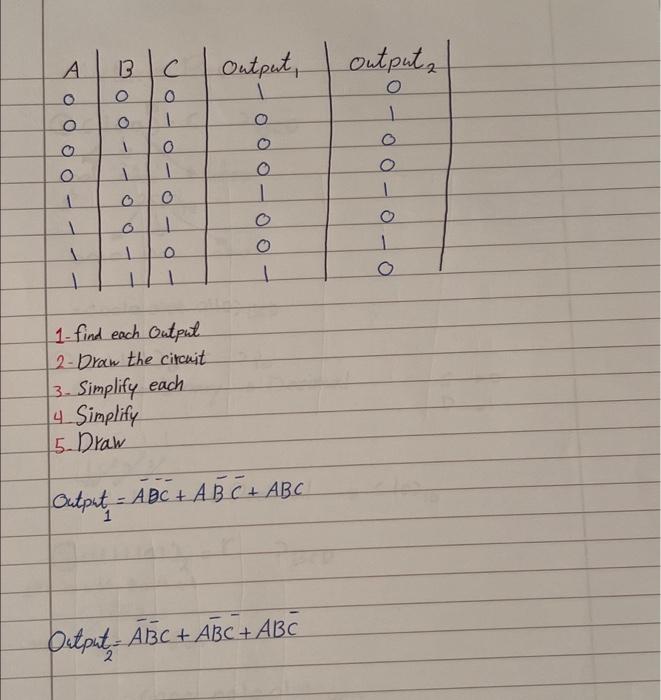 A B C Output₁ Output₂
0 0 0 1 0
0 0 1 0 1
0 1 0 0 0
0 1 1 0 0
1 0 0 1 1
1 0 1 0 0
1 1 0 0 1
1 1 1 1 0
1- find each Output
2- Draw the circuit
3- Simplify each
4 Simplify
5- Draw
Output₁ = A̅B̅C̅ + AB̅C̅ + ABC
Output₂ = A̅B̅C + AB̅C̅ + ABC̅